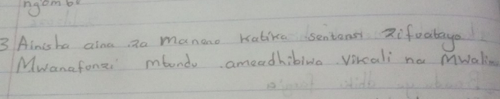 ngombe
3 Ainisha aina za maneno katika sentensi zifuatayo
Mwanafunzi mtundu ameadhibiwa vikali na Mwalimu